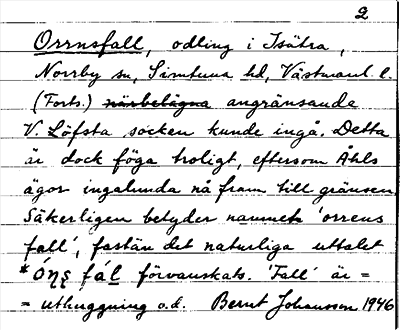 2
Orrnsfall, odling i Isätra,
Norrby sn, Simtuna hd, Västmanl. l.
(Forts.) närbelägna angränsande
V. Löfsta socken kunde ingå. Detta
är dock föga troligt, eftersom Åhls
ägor ingalunda nå fram till gränsen.
Säkerligen betyder namnet 'orrens
fall', fastän det naturliga uttalet
fál förvanskats. 'Fall' är =
= uthuggning o.d. Bernt Johansson 1946